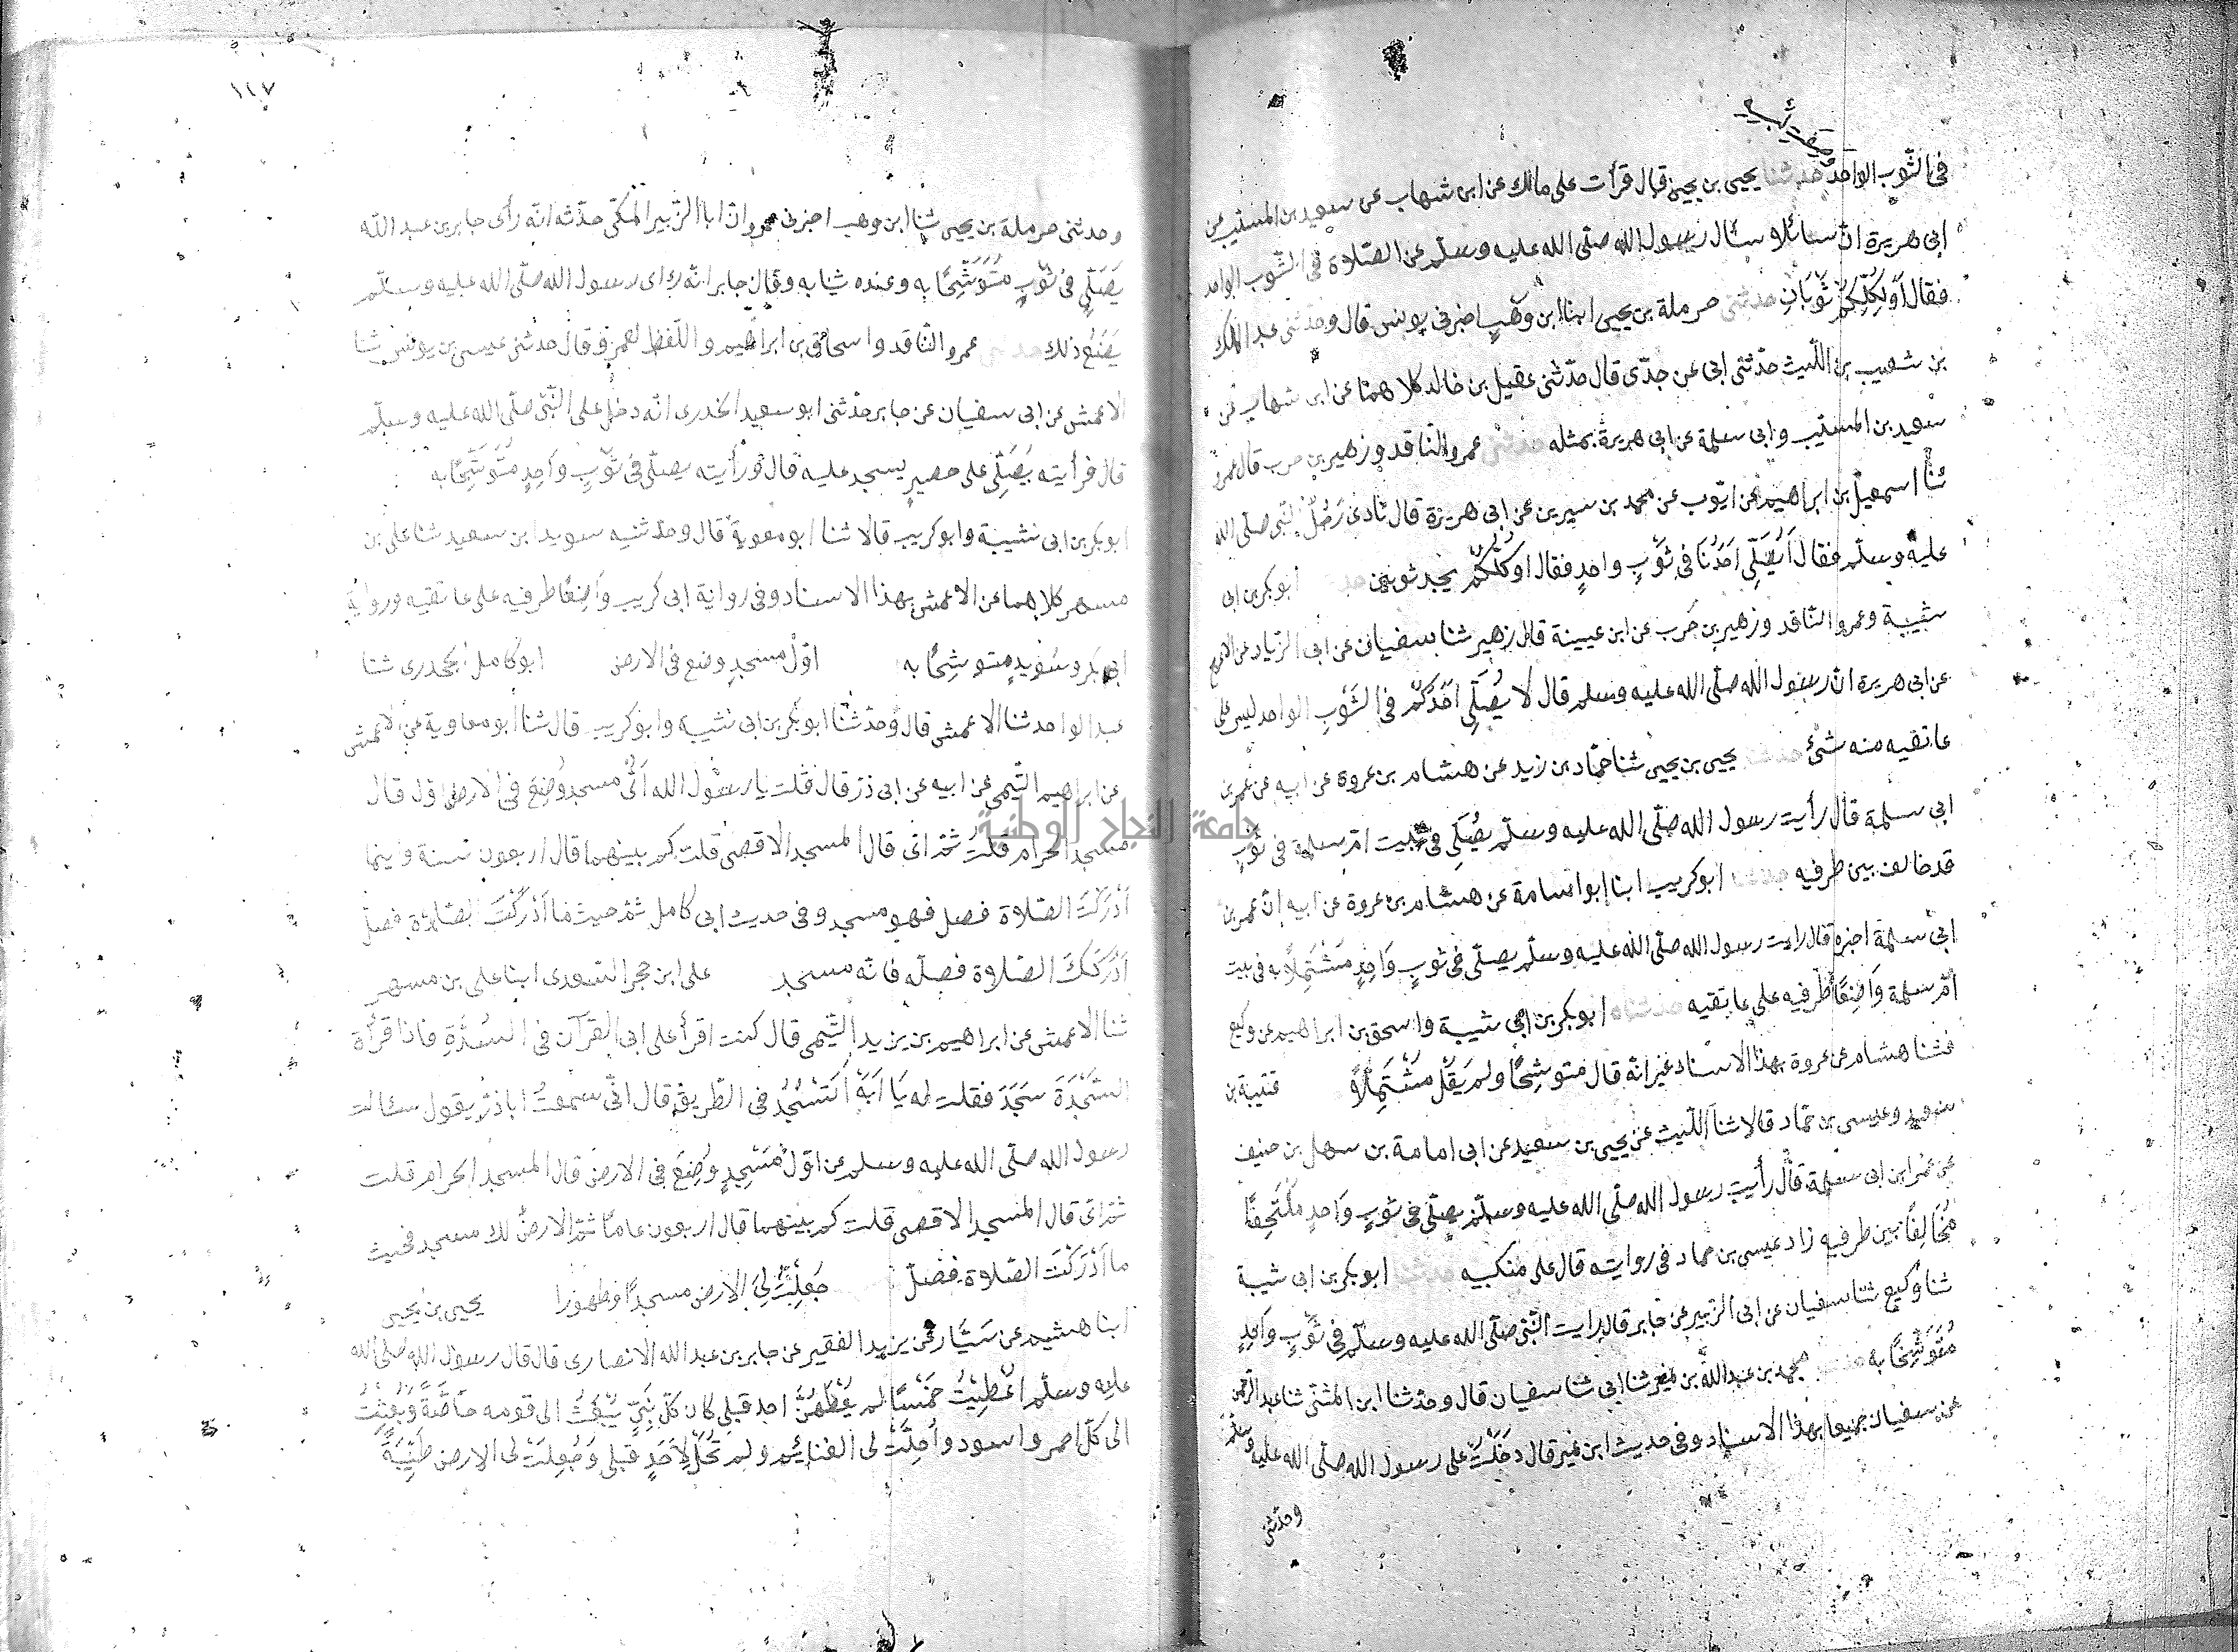 في الثوب الواحد حدثنا يحيى بن يحيى قال قرأت على مالك عن ابن شهاب عن سعيد بن المسيب عن
ابى هريرة ان سائلا سئال رسول الله صلّى الله عليه وسلّم عن الصّلاة في الثّوب الواحد
فقال اَوَلِكُلِّكُمْ ثَوْبَانِ حدثنى حرملة بن يحيى ابنا ابن وَهْبٍ اخبرنى يونس قال وحدّثنى عبد الملك
بن شعيب بن اللّيث حدّثنى ابى عن جدّى قال حدّثنى عقيل بن خالد كلاهما عن ابن شهاب عن
سعيد بن المسيّب وابى سلمة عن ابى هريرة بمثله حدثنى عمرو النّاقد وزهير بن حرب قال عمرو
ثنا اسمعيل بن ابراهيم عن ايّوب عن محمد بن سيرين عن ابى هريرة قال نادى رَجُلٌ النّبى صلّى الله
عليه وسلّم فقال اَيُصَلِّى اَحَدُنَا فى ثَوْبٍ واحدٍ فقال اوَكُلُّكُمْ يجد ثوبين حدثنا ابو بكر بن ابى
شيبة وعمرو النّاقد وزهير بن حَرب عن ابن عيينة قال زهير ثنا سفيان عن ابى الزّناد عن الاعرج
عن ابى هريرة انّ رسول الله صلّى الله عليه وسلم قال لا يُصَلِّى اَحَدُكُمْ فى الثَّوْبِ الواحد ليس على
عاتقيه منه شئ حدثنا يحيى بن يحيى ثنا حمّاد بن زيد عن هشام بن عروة عن ابيه عن عمر بن
ابى سلمة قال رأيت رسول الله صلّى الله عليه وسلّم يُصَلِّى فى بيت امّ سلمة فى ثَوْبٍ
قد خالف بين طرفيه حدثنا ابو كريب ابنا ابو اسامة عن هشام بن عروة عن ابيه انّ عمر بن
ابى سلمة اخبره قال رايت رسول الله صلّى الله عليه وسلّم يصلّى فى ثوبٍ وَاحِدٍ مُشْتَمِلًا به فى بيت
امّ سلمة وَاضِعًا طَرفيه على عاتقيه حدثناه ابو بكر بن ابى شيبة واسحق بن ابراهيم عن وكيع
ثنا هشام عن عروة بهذا الاسناد غير انّه قال متوشِحًا ولم يَقُلْ مُشْتَمِلًا قتيبة بن
سعيد وعيسى بن حمّاد قالا ثنا اللّيث عن يحيى بن سعيد عن ابى امامة بن سهل بن حنيف
عن عمر ابن ابى سلمة قال رأيت رسول الله صلّى الله عليه وسلّم يصلّى فى ثوبٍ وَاحدٍ مُلْتَحِفًا
مُخَالِفًا بين طرفيه زاد عيسى بن حماد فى روايته قال على منكبيه حدثنا ابو بكر بن ابى شيبة
ثنا وكيع ثنا سفيان عن ابى الزّبير عن جابر قال رايت النّبى صلّى الله عليه وسلّم فى ثَوْبٍ وَاحِدٍ
مُتَوَشِّحًا به محمد بن عبد الله بن نمير ثنا ابى ثنا سفيان قال وحدّثنا ابن المثنّى ثنا عبد الرحمن
عن سفيان جميعا بهذا الاسناد وفى حديث ابن نمير قال دخلت على رسول الله صلّى الله عليه وسلم
وحدّثنى
١٤٧
وحدثنى حرملة بن يحيى ثنا ابن وهب اخبرنى عمرو انّ ابا الزّبير المكّى حدّثه انّه رأى جابر بن عبد الله
يُصَلِّى فى ثَوْبٍ مُتَوَشِّحًا به وعنده ثيابه وقال جابر انّه رءاى رسول الله صلّى الله عليه وسلّم
يَصْنَعُ ذلك حدثنى عمرو النّاقد واسحاق بن ابراهيم واللّفظ لعمرو قال حدثنى عيسى بن يونس ثنا
الاعمش عن ابى سفيان عن جابر حدّثنى ابو سعيد الخدرى انّه دخل على النّبىّ صلّى الله عليه وسلّم
قال فرأيته يُصَلِّى على حصيرٍ يسجد عليه قال ورأيته يصلّى فى ثَوْبٍ وَاحِدٍ مُتَوَشِّحًا به
ابو بكر بن ابى شيبة وابو كريب قالا ثنا ابو معوية قال وحدّثنيه سويد ابن سعيد ثنا على بن
مسهر كلاهما عن الاعمش بهذا الاسناد وفى رواية ابى كريب وَاضِعًا طرفيه على عاتقيه ورواية
ابى بكر وسُوَيدٍ متوشِحًا به اوّل مسجدٍ وضع فى الارض ابو كامل الجحدرى ثنا
عبد الواحد ثنا الاعمش قال وحدّثنا ابو بكر بن ابى شيبه وابو كريب قال ثنا ابو معاوية عن الاعمش
عن ابراهيم التّيمى عن ابيه عن ابى ذرّ قال قلت يا رسول الله اَىُّ مسجد وُضِعَ فى الارض اوّل قال
مسجد الحرام قلتُ ثمّ اىّ قال المسجد الاقصى قلت كم بينهما قال اربعون سنة واينما
اَدْرَكَتْكَ الصّلاة فصل فهو مسجد وفى حديث ابى كامل ثمّ حيث ما اَدْرَكَتْكَ الصّلاة فصلّ
اَدْرَكَتْكَ الصّلاة فصلّه فانّه مسجد على ابن حجر السّعدى ابنا على بن مسهر
ثنا الاعمش عن ابراهيم بن يزيد التّيمى قال كنت اقرأ على ابى القرآن فى السُّدَّةِ فاذا قرأة
السّجْدَةَ سَجَدَ فقلت له يَا اَبَةِ اَتَسْجُدُ فى الطّريق قال انّى سمعت اباذرّ يقول سئالت
رسول الله صلّى الله عليه وسلم عن اوّل مَسْجِدٍ وُضِعَ فى الارض قال المسجد الحرام قلت
ثمّ اىّ قال المسجد الاقصى قلت كم بينهما قال اربعون عامًا ثمّ الارض لك مسجد فحيث
ما اَدْرَكَتْكَ الصّلاة فصلّ جُعِلَتْ لِىَ الارض مسجدًا وطهورا يحيى بن يحيى
ابنا هشيم عن سَيَّار عن يزيد الفقير عن جابر بن عبد الله الانصارى قال قال رسول الله صلى الله
عليه وسلّم اُعْطِيْتُ خَمْسًا لم يُعْطَهُنَّ احد قبلى كان كلّ نَبِىٍّ يُبْعَثُ الى قومه خاصّةً وَبُعِثْتُ
الى كلّ احمر واسود واُحِلَّتْ لى الغنائم ولم تُحَلَّ لِاَحَدٍ قبلى وَجُعِلَتْ لى الارض طَيِّبَةً
جامعة النجاح الوطنية